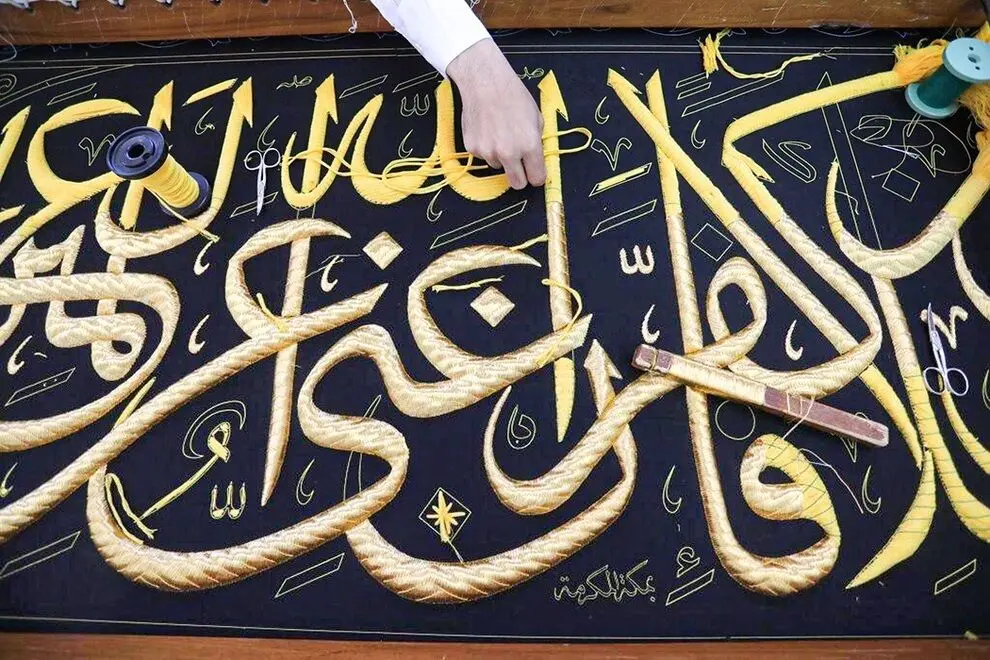 كفر فإن الله غني عن
بمكة المكرمة